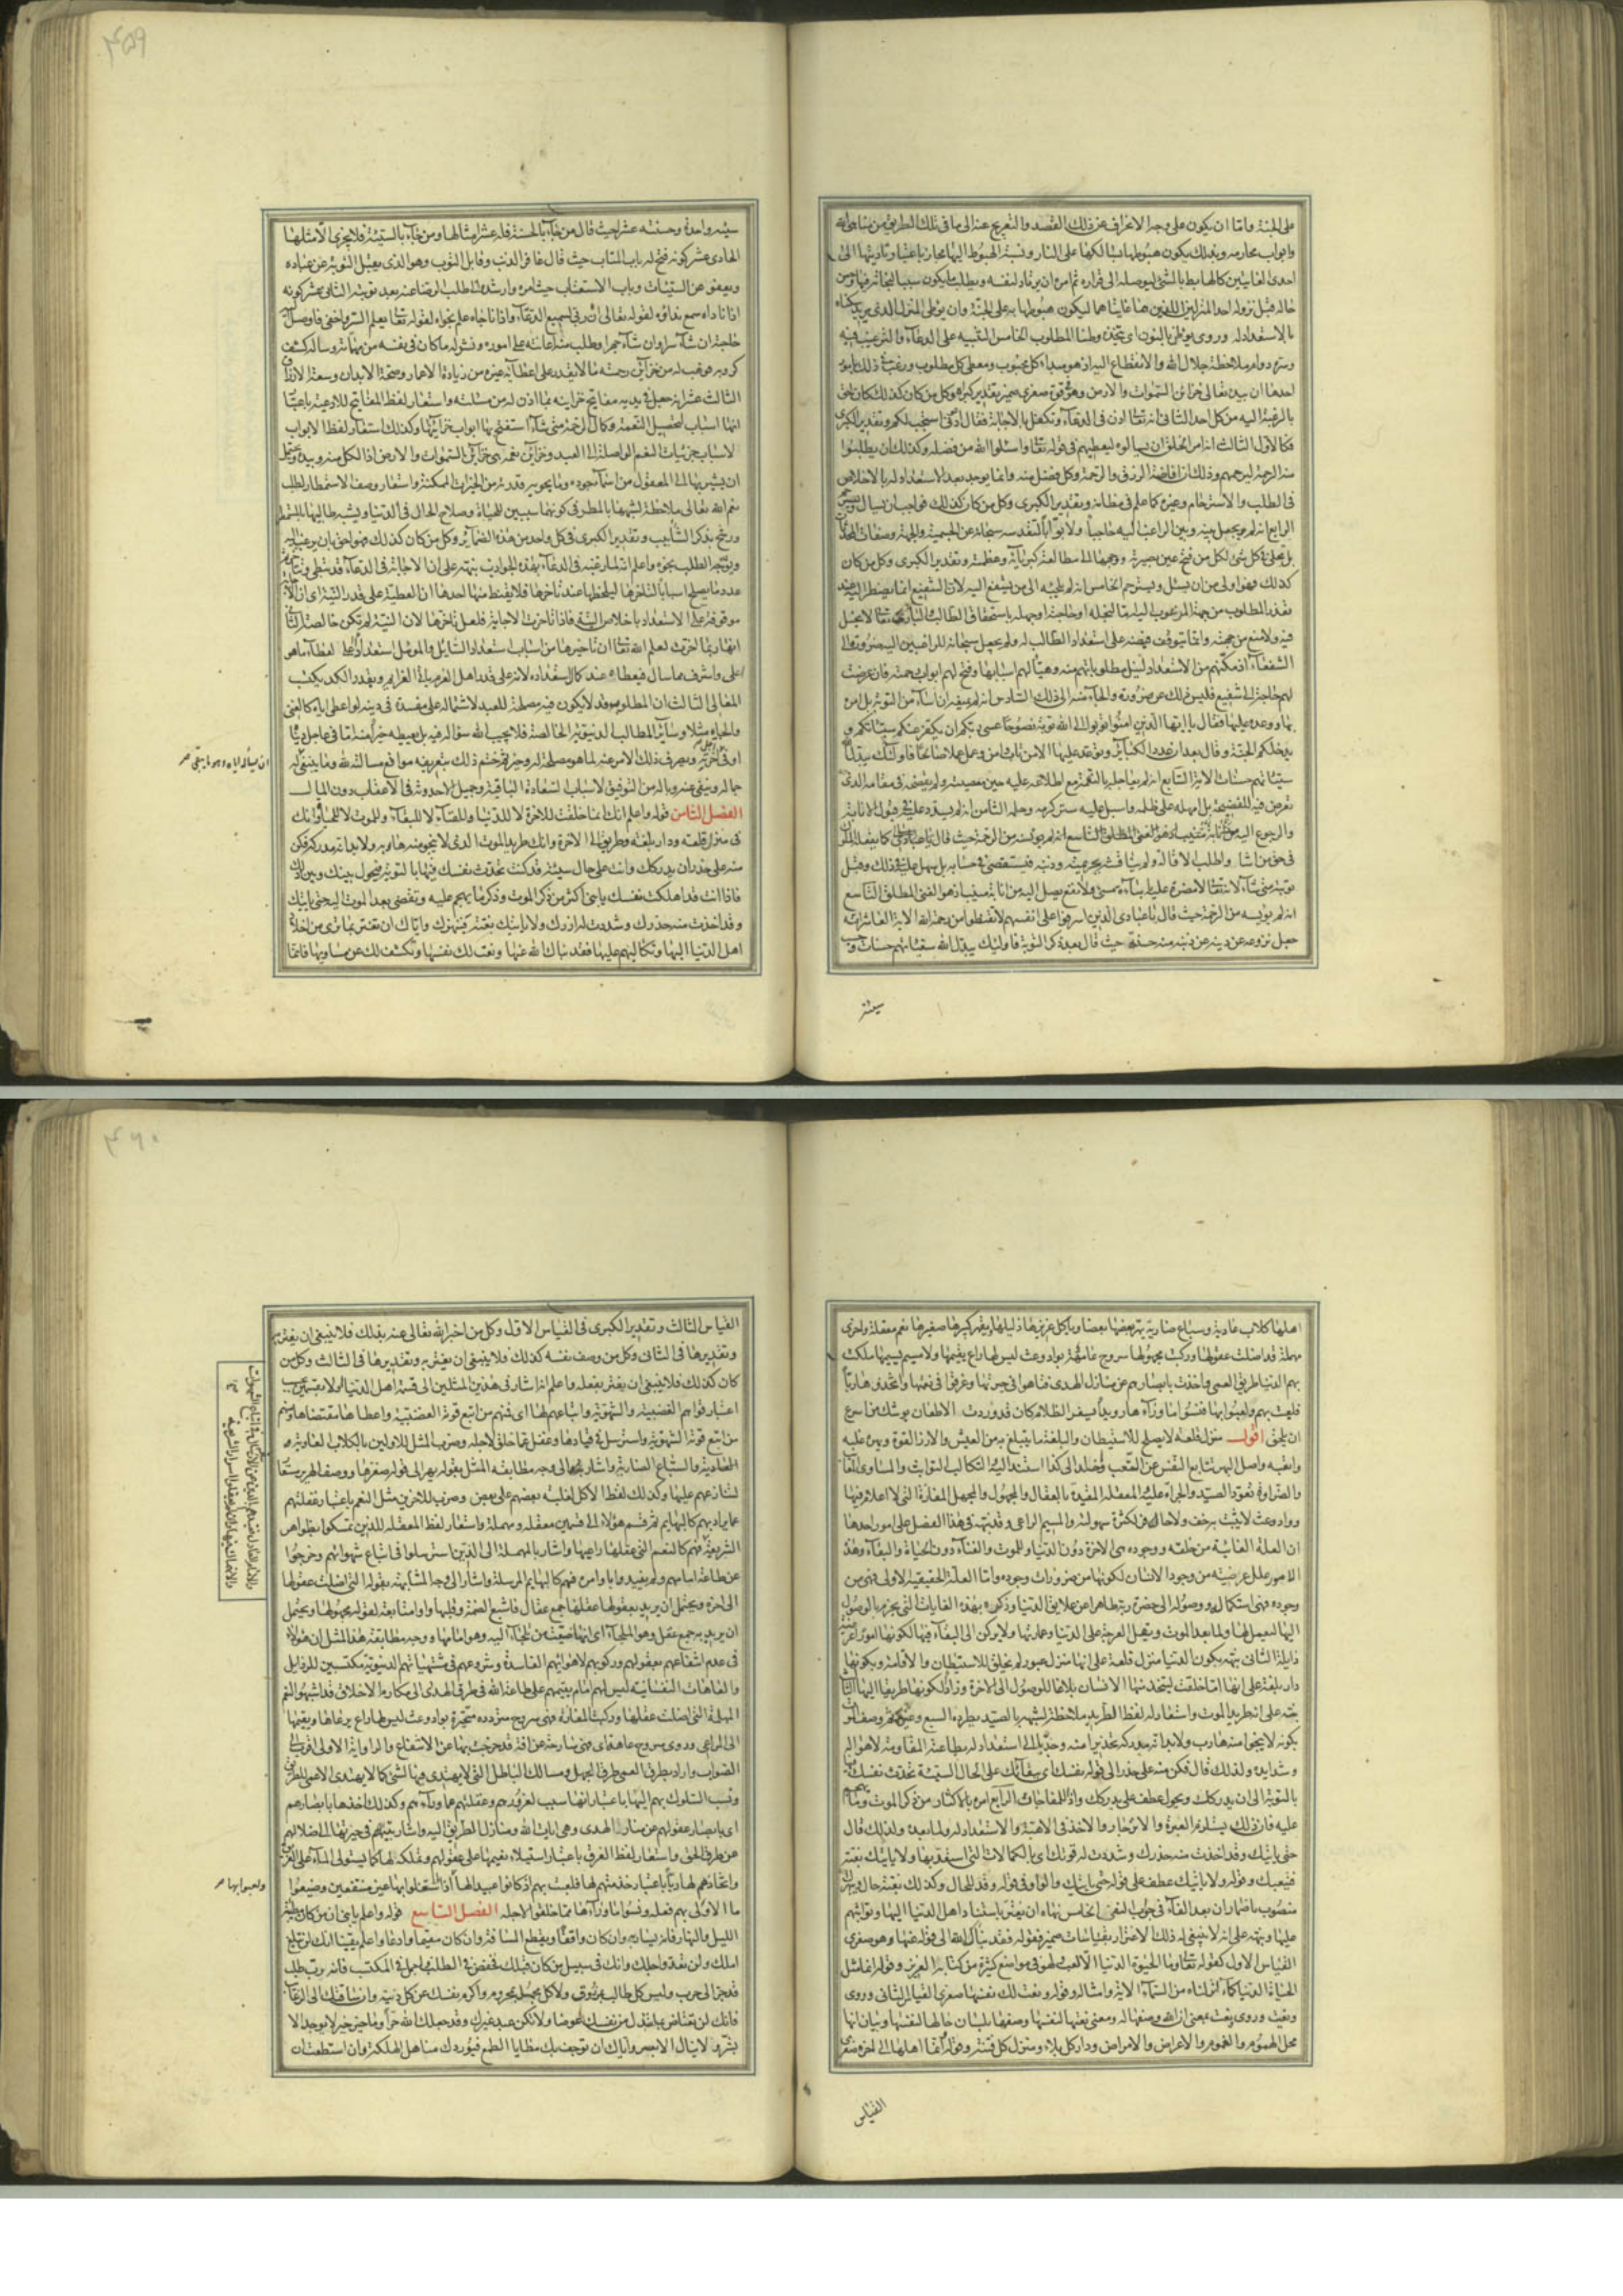 على الجنة واما ان يكون على وجه الانحراف عن ذلك القصد والتعريج عنه الى ما في تلك الطريق من مناهى الله
وابواب محارمه وبذلك يكون هبوطها بسالكها على النار ونسبة الهبوط اليها مجاز باعتبار تاديتها الى
احدى الغايتين كالهابط بالشئ ليوصله الى قراره ثم امره ان يرتاد لنفسه ويطلب ما يكون سببا لنجاته فيها ومن
حاله قبل نزوله احد المنزلين اللذين هما غايتاهما ليكون هبوطها به على الجنة وان يوطى المنزل الذى يريد سكناه
بالاستعداد له وروى يوطن بالنون اى يتخذه وطنا المطلوب الخامس التنبيه على الدعآء والترغيب فيه
وسره دوام ملاحظة جلال الله والانقطاع اليه اذ هو مبدء كل محبوب ومعطى كل مطلوب ورغب فى ذلك بامور
احدها ان بيده تعالى خزائن السموات والارض وهو فى قوة صغرى ضمير تقدير كبراه وكل من كان كذلك كان احق
بالرغبة اليه من كل احد الثانى انه تعالى اذن فى الدعآء وتكفل بالاجابة فقال ادعونى استجب لكم وتقدير الكبرى
فكالاول الثالث انه امر الخلق ان يسالوه ليعطيهم فى قوله تعالى واسئلوا الله من فضله وكذلك ان يطلبوا
منه الرحمة ليرحمهم وذلك ان افاضة الرزق والرحمة وكل فضل منه وانما يوجد بعد الاستعداد له بالاخلاص
فى الطلب والاسترحام وغيره كما علم فى مظانه وتقدير الكبرى وكل من كان كذلك فواجب ان يسال ويسترحم
الرابع انه لم يجعل بينه وبين الراغب اليه حاجبا ولا بوابا لتقدسه سبحانه عن الجسمية والجهة وصفات المحدثات
بل تجلى فى كل شئ لكل من فتح عين بصيرته ووجهها الى مطالعة كبريآئه وعظمته وتقدير الكبرى وكل من كان
كذلك فهو اولى من ان يسئل ويسترحم الخامس انه لم يلجئه الى من يشفع اليه لان الشفيع انما يضطر اليه عند
تعذر المطلوب من جهة المرغوب اليه اما لبخله او حاجته او جهله باستحقاق الطالب والبارى تعالى لا بخل
فيه ولا منع من جهته وانما يتوقف فيضه على استعداد الطالب له ولم يجعل سبحانه للراغبين اليه ضرورة الى
الشفعآء اذ مكنهم من الاستعداد لنيل مطلوباتهم منه وهيأ لهم اسبابها وفتح لهم ابواب رحمته فان عرضت
لهم حاجة الى شفيع فليس ذلك عن ضرورة والجآء منه الى ذلك السادس انه لم يمنعه ان اسآء من التوبة بل امره
بها ووعده عليها فقال يا ايها الذين امنوا توبوا الى الله توبة نصوحا عسى ربكم ان يكفر عنكم سيئاتكم و
يدخلكم الجنة وقال بعد ان عدد الكبآئر وتوعد عليها الا من تاب وامن وعمل عملا صالحا فاولئك يبدل الله
سيئاتهم حسنات الاية السابع انه لم يعاجله بالنقمة مع اطلاعه عليه حين معصيته ولم يفضحه فى مقامه الذى
تعرض فيه للفضيحة بل امهله على ظلمه واسبل عليه ستر كرمه وحلمه الثامن انه لم يشدد عليه فى قبول الانابة
والرجوع اليه
فى حق من اسآء والطلب لاقالة ولم يناقشه بجريمته وذنبه فيستقصى فى حسابه بل سهل عليه فى ذلك وقبل
توبته متى شآء لانه تعالى لا تضره عليه اسآءة مسئ ولا نفع يصل اليه من انابة منيب اذ هو الغنى المطلق التاسع
انه لم يؤيسه من الرحمة حيث قال يا عبادى الذين اسرفوا على انفسهم لا تقنطوا من رحمة الله الاية العاشر انه
جعل نزوعه عن ذنبه حسنة حيث قال بعد ذكر التوبة فاوليك يبدل الله سيئاتهم حسنات وحسب
سيئته
٤٥٩
سيئته واحدة وحسنته عشرا حيث قال من جآء بالحسنة فله عشر امثالها ومن جآء بالسيئة فلا يجزى الا مثلها
الحادى عشر كونه فتح له باب المتاب حيث قال غافر الذنب وقابل التوب وهو الذى يقبل التوبة عن عباده
ويعفو عن السيئات وباب الاستعتاب حيث امره وارشده الى طلب الرضا عنه بعد توبته الثانى عشر كونه
اذا ناداه سمع نداؤه لقوله تعالى انه سميع الدعآء واذا ناجاه علم نجواه لقوله تعالى يعلم السر واخفى فاوصل
حاجته ان شآء سرا وان شآء جهرا وطلب منه اعانته على اموره ونشر له ما كان فى نفسه من مهماته وساله كشف
كروبه فوهب له من خزآئن رحمته ما لا يقدر على اعطآئه غيره من زيادة الاعمار وصحة الابدان وسعة الارزاق
الثالث عشر انه جعل فى يديه مفاتيح خزاينه بما اذن له من مسئلته واستعار لفظ المفاتيح للادعية باعتبار
انها اسباب لتحصيل النعمة وكمال الرحمة متى شآء استفتح بها ابواب خزآئنها وكذلك استعار لفظ الابواب
لاسباب جزئيات النعم الواصلة الى العبد وخزآئن نعمه هى خزآئن السموات والارض اذ الكل منه وبيده ويحتمل
ان يشير بها الى المعقول من سمآء جوده وما يحويه قدرته من الخيرات الممكنة واستعار وصف الاستمطار لطلب
نعم الله تعالى ملاحظة لشبهها بالمطر فى كونهما سببين للحياة وصلاح الحال فى الدنيا وشبه طالبها بالمستمطر
ورشح بذكر الشآبيب وتقدير الكبرى فى كل واحد من هذه الضمآئر وكل من كان كذلك فهو احق بان يرغب اليه
ويوجه الطلب نحوه واعلم انه لما رغبه فى الدعآء بهذه الجواذب نبهه على ان الاجابة فى الدعآء قد تبطى وتتاخر
عدد ما يصلح اسبابا لتاخرها ليلحظها عند تاخرها فلا يقنط منها احدها ان العطية على قدر النية اى ان الاجابة
موقوفة على الاستعداد باخلاص النية فاذا تاخرت الاجابة فلعل تاخرها لان النية لم تكن خالصة الثانى
انها ربما اخرت لعلم الله تعالى ان تاخيرها من اسباب استعداد السايل والمؤمل استعدادا لعطآء ما هو
اعلى واشرف مما سال فيعطاه عند كمال استعداده لانه على قدر اهل العزم تاتى العزايم وبقدر الكد يكتسب
المعالى الثالث ان المطلوب قد لا يكون فيه مصلحة للعبد لاشتماله على مفسدة فى دينه لو اعطى اياه كالغنى
والجاه مثلا وسآئر المطالب الدنيوية الخالصة فلا يجيب الله سؤاله فيه بل يعطيه خيرا منه اما فى عاجل دنيا
او فى اجل اخرته ويصرف ذلك الامر عنه لما هو مصلحة له وخير ثم ختم ذلك بتعريفه مواقع مسالته لله وما ينبغى له
جماله وينفى عنه وباله من التوفيق لاسباب السعادة الباقية وجميل الاحدوثة فى الاعقاب دون المال
الفصل الثامن قوله واعلم انك انما خلقت للاخرة لا للدنيا وللفنآء لا للبقآء وللموت لا للحياة وانك
فى منزل قلعة ودار بلغة وطريق الى الاخرة وانك طريد الموت الذى لا ينجو منه هاربه ولا بد انه مدركه فكن
منه على حذر ان يدركك وانت على حال سيئة قد كنت تحدث نفسك فيها بالتوبة فيحول بينك وبين ذلك
فاذا انت قد اهلكت نفسك يا بنى اكثر من ذكر الموت وذكر ما تهجم عليه وتفضى بعد الموت اليه حتى ياتيك
وقد اخذت منه حذرك وشددت له ازرك ولا ياتيك بغتة فيبهرك واياك ان تغتر بما ترى من اخلاد
اهل الدنيا اليها وتكالبهم عليها فقد نباك الله عنها ونعت لك نفسها وتكشفت لك عن مساويها فانما
٤٦٠
اهلها كلاب عاوية وسباع ضارية يهر بعضها بعضا وياكل عزيزها ذليلها ويقهر كبيرها صغيرها نعم معقلة واخرى
مهملة قد اضلت عقولها وركبت مجهولها سروح عاهة بواد وعث ليس لها راع يقيمها ولا مسيم يسيمها سلكت
بهم الدنيا طريق العمى واخذت بابصارهم عن منازل الهدى فتاهوا فى حيرتها وغرقوا فى نعمتها واتخذوها ربا
فلعبت بهم ولعبوا بها فنسوا ما ورآءها رويدا يسفر الظلام كان قد وردت الاظعان يوشك من اسرع
ان يلحق اقول منزل قلعة لا يصلح للاستيطان والبلغة ما يتبلغ به من العيش والازر القوة وبهره غلبه
واتعبه واصل البهر تتابع النفس عن التعب وخلد الى كذا استند اليه والتكالب التواثب والمساوى المعائب
والضراوة تعود الصيد والجرأة عليه المعقلة المقيدة بالعقال والمجهول والمجهل المفازة التى لا اعلام فيها
وواد وعث لا يثبت به خف ولا حافر لكثرة سهولته والمسيم الراعى وقد نبه فى هذا الفصل على امور احدها
ان العلة الغائية من خلقه ووجوده هى الاخرة دون الدنيا وللموت والفنآء دون الحياة والبقآء وهذه
الامور علل عرضية من وجود الانسان لكونها من ضرورات وجوده واما العلة الحقيقية الاولى فهى من
وجوده فهى استكماله ووصوله الى حضرة ربه طاهرا عن علايق الدنيا وذكره بهذه الغايات التى يجزم بالوصول
اليها ليعمل لها ولما بعد الموت ويقل العرجة على الدنيا وعمارتها ولا يركن الى البقآء فيها لكونها امورا عرضية
زايلة الثانى نبهه بكون الدنيا منزل قلعة على انها منزل عبور لم يخلق للاستيطان والاقامة وبكونها
دار بلغة على انها انما خلقت ليتخذ منها الانسان بلاغا للوصول الى الاخرة وزادا لكونها طريقا اليها الثالث
نبه على انه طريد الموت واستعار له لفظ الطريد ملاحظة لشبهه بالصيد يطرده السبع وغيره ووصف الموت
بكونه لا ينجو منه هارب ولا بد انه مدركه تحذيرا منه وجذبا الى الاستعداد له بطاعته المقاومة لاهواله
وشدايده ولذلك قال فكن منه على حذر الى قوله نفسك اى بقآئك على الحال السيئة تحدث نفسك
بالتوبة الى ان يدركك ويحول عطف على يدركك واذا للمفاجات الرابع امره بالاكثار من ذكر الموت وما يهجم
عليه فان ذلك يستلزم العبرة والانزجار والاخذ فى الاهبة والاستعداد له ولما بعده ولذلك قال
حتى ياتيك وقد اخذت منه حذرك وشددت له قوتك اى بالكمالات التى استعد بها ولا ياتيك بغتة
فيتعبك وقوله ولا ياتيك عطف على قوله حتى ياتيك والواو فى قوله وقد للحال وكذلك بغتة حال ويبهرك
منصوب باضمار ان بعد الفآء فى جواب النفى الخامس نهاه ان يغتر باستناد اهل الدنيا اليها وتواثبهم
عليها ونبهه على انه لا ينبغى له ذلك الاغترار بقياسات ضمير فقوله فقد نباك الله الى قوله عنها وهو صغرى
القياس الاول كقوله تعالى وما الحيوة الدنيا الا لعب ولهو فى مواضع كثيرة من كتابه العزيز وقوله انما مثل
الحياة الدنيا كمآء انزلناه من السمآء الاية وامثاله وقوله ونعت لك نفسها صغرى القياس الثانى وروى
ونعيت وروى نعت بمعنى ان الله وصفها له ومعنى نعتها لنفسها وصفها بلسان حالها لنفسها وبيان انها
محل الهموم والغموم والاعراض والامراض ودار كل بلاء ومنزل كل فتنة وقوله انما اهلها الى اخره صغرى
القياس
القياس الثالث وتقدير الكبرى فى القياس الاول وكل من اخبر الله تعالى عنه بذلك فلا ينبغى ان يغتر به
وتقديرها فى الثانى وكل من وصف نفسه كذلك فلا ينبغى ان يغتر به وتقديرها فى الثالث وكل من
كان كذلك فلا ينبغى ان يغتر بفعله واعلم انه اشار فى هذين المثلين الى قسمة اهل الدنيا اولا بقسمين بحسب
اعتبار قواهم الغضبية والشهوية واتباعهم لها اى فمنهم من اتبع قوته الغضبية واعطاها مقتضاها ومنهم
من اتبع قوته الشهوية واسترسل فى قيادها وغفل عما خلق لاجله وضرب المثل للاولين بالكلاب العاوية و
والسباع الضارية واشار الى وجه مطابقة المثل بقوله يهر الى قوله صغيرها ووصف الهرير مستعار
لتنازعهم عليها وكذلك لفظ الاكل لغلبة بعضهم على بعض وضرب للاخرين مثل النعم باعتبار غفلتهم
عما يراد بهم كالبهايم ثم قسم هؤلاء الى قسمين معقلة ومهملة واستعار لفظ المعقلة للذين تمسكوا بظواهر
الشريعة فهم كالنعم التى عقلها راعيها واشار بالمهملة الى الذين استرسلوا فى اتباع شهواتهم وخرجوا
عن طاعة امامهم ولم يتقيدوا باوامره فهم كالبهايم المرسلة واشار الى وجه المشابهة بقوله التى اضلت عقولها
الى اخره ويحتمل ان يريد بعقولها عقلها جمع عقال فاشبع الضمة وقلبها واوا متابعة لقوله مجهولها ويحتمل
ان يريد به جمع عقل وهو الملجآء اى انها ضيعت من تلجآء اليه وهو امامها ووجه مطابقة هذا المثل ان هؤلاء
فى عدم انتفاعهم بعقولهم وركوبهم لاهوائهم الفاسدة وشروعهم فى مشتهياتهم الدنيوية مكتسبين للرذايل
والعاهات النفسانية ليس لهم امام يقيمهم على طاعة الله فى طرق الهدى الى مكارم الاخلاق قد اشبهوا النعم
المهملة التى اضلت عقلها وركبت المفازة فهى سروح مترددة متحيرة بواد وعث ليس لها راع يرعاها ويقيمها
الى المراعى وروى سروح عاهة اى هى سارحة عن افة قد خرجت بها عن الانتفاع والراواية الاولى اقرب الى
الصواب واراد بطرق العمى طرق الجهل ومسالك الباطل التى لا يهتدى فيها لشئ كما لا يهتدى الاعمى للطريق
ونسب السلوك بهم اليها باعتبار انها سبب لغرورهم وغفلتهم عما ورآءهم وكذلك اخذها بابصارهم
اى بابصار عقولهم عن منار الهدى وهى ايات الله ومنازل الطريق اليه واشار بتيههم فى حيرتها الى ضلالهم
عن طرق الحق واستعار لفظ الغرق باعتبار استيلاء نعيمها على عقولهم وتملكه لها كما يستولى المآء على الغريق
واتخاذهم لها ربا باعتبار خدمتهم لها فلعبت بهم اذ كانوا عبيدا لها اذ اشتغلوا بها غير منتفعين وضيعوا
ما الاولى بهم فعله ونسوا ما ورآءها مما خلقوا لاجله الفصل التاسع قوله واعلم يا بنى ان من كان مطيته
الليل والنهار فانه يسار به وان كان واقفا ويقطع المسافة وان كان مقيما وادعا واعلم يقينا انك لن تبلغ
املك ولن تعدو اجلك وانك فى سبيل من كان قبلك فخفض فى الطلب واجمل فى المكتسب فانه رب طلب
قد جر الى حرب وليس كل طالب بمرزوق ولا كل مجمل بمحروم واكرم نفسك عن كل دنية وان ساقتك الى الرغآئب
فانك لن تعتاض بما تبذل من نفسك عوضا ولا تكن عبد غيرك وقد جعلك الله حرا وما خير خير لا يوجد الا
بشر ويسر لا ينال الا بعسر واياك ان توجف بك مطايا الطمع فتوردك مناهل الهلكة وان استطعت ان
ولعبوا بها صح